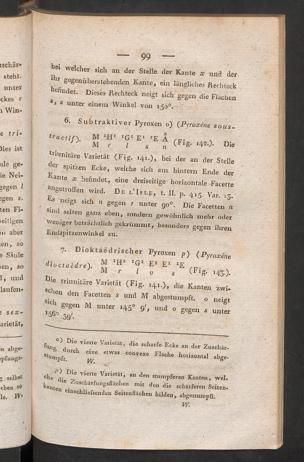 — 99 —
bei welcher sich an der Stelle der Kante x und der
ihr gegenüberstehenden Kante, ein längliches Rechteck
befindet. Dieses Rechteck neigt sich gegen die Flächen
s, s unter einem Winkel von 150°.
6. Subtraktiver Pyroxen o) (Pyroxène sous-
tractif). M ³H³ ¹G¹ E¹ ²E A
M r l s n (Fig. 142.). Die
trimunitäre Varietät (Fig. 141.), bei der an der Stelle
der spitzen Ecke, welche sich am hintern Ende der
Kante x befindet, eine dreiseitige horizontale Facette
angetroffen wird. DE L'ISLE, t. II. p. 415. Var. 15.
Es neigt sich n gegen r unter 90°. Die Facetten n
sind selten ganz eben, sondern gewöhnlich mehr oder
weniger beträchtlich gekrümmt, besonders gegen ihren
Endspitzenwinkel zu.
7. Dioktaëdrischer Pyroxen p) (Pyroxène
dioctaèdre). M ³H³ ¹G¹ E² E¹ ²E
M r l o s (Fig. 143.).
Die trimunitäre Varietät (Fig. 141.), die Kanten zwi-
schen den Facetten s und M abgestumpft. o neigt
sich gegen M unter 145° 9′, und o gegen s unter
156° 39′.
o) Die vierte Varietät, die scharfe Ecke an der Zuschär-
fung durch eine etwas convexe Flache horizontal abge-
stumpft. W.
p) Die vierte Varietät, an den stumpferen Kanten, wel-
che die Zuschärfungsflächen mit den die schärferen Seiten-
kanten einschliessenden Seitenflächen bilden, abgestumpft.
W.